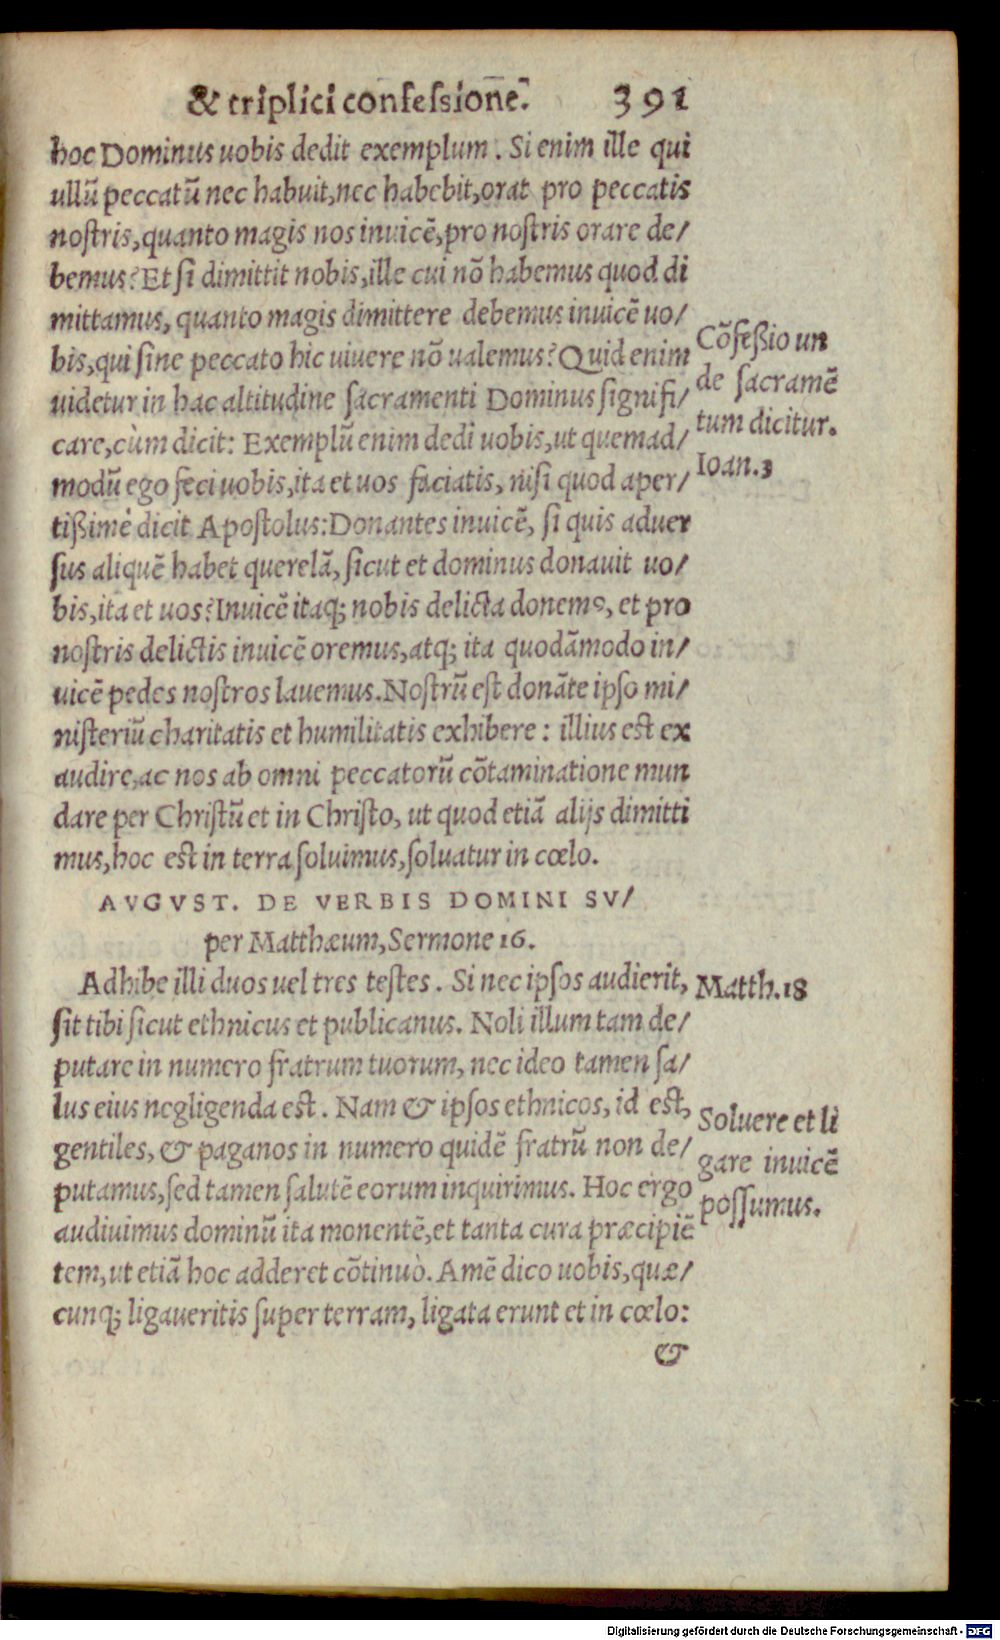 & triplici confeſsione. 391
hoc Dominus uobis dedit exemplum. Si enim ille qui
ullū peccatū nec habuit, nec habebit, orat pro peccatis
noſtris, quanto magis nos inuicē, pro noſtris orare de/
bemus? Et ſi dimittit nobis, ille cui nō habemus quod di
mittamus, quanto magis dimittere debemus inuicē uo/
bis, qui ſine peccato hic uiuere nō ualemus? Quid enim
uidetur in hac altitudine ſacramenti Dominus ſignifi/
care, cùm dicit: Exemplū enim dedi uobis, ut quemad/
modū ego feci uobis, ita et uos faciatis, niſi quod aper/
tißimè dicit Apoſtolus: Donantes inuicē, ſi quis aduer
ſus aliquē habet querelā, ſicut et dominus donauit uo/
bis, ita et uos? Inuicē itaq; nobis delicta donemꝰ, et pro
noſtris delictis inuicē oremus, atq; ita quodāmodo in/
uicē pedes noſtros lauemus. Noſtrū eſt donāte ipſo mi/
niſteriū charitatis et humilitatis exhibere: illius eſt ex
audire, ac nos ab omni peccatorū cōtaminatione mun
dare per Chriſtū et in Chriſto, ut quod etiā alijs dimitti
mus, hoc eſt in terra ſoluimus, ſoluatur in cœlo.
Cōfeßio un
de ſacramē
tum dicitur.
Ioan.3
AVGVST. DE VERBIS DOMINI SV/
per Matthæum, Sermone 16.
Adhibe illi duos uel tres teſtes. Si nec ipſos audierit,
ſit tibi ſicut ethnicus et publicanus. Noli illum tam de/
putare in numero fratrum tuorum, nec ideo tamen ſa/
lus eius negligenda eſt. Nam & ipſos ethnicos, id eſt,
gentiles, & paganos in numero quidē fratrū non de/
putamus, ſed tamen ſalutē eorum inquirimus. Hoc ergo
audiuimus dominū ita monentē, et tanta cura præcipiē
tem, ut etiā hoc adderet cōtinuò. Amē dico uobis, quæ/
cunq; ligaueritis ſuper terram, ligata erunt et in cœlo:
&
Matth.18
Soluere et li
gare inuicē
poſſumus.
Digitalisierung gefördert durch die Deutsche Forschungsgemeinschaft - DFG